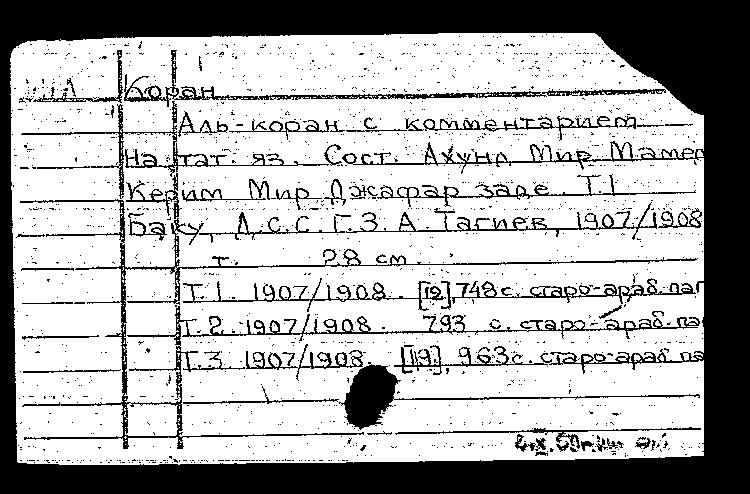 Коран
Аль-коран с комментарием
На тат. яз. Сост. Ахунд Мир Мамед
Керим Мир Джафар заде. Т.1
Баку, Д.С.С. Г.З.А. Тагиев, 1907/1908
т. 28 см.
Т.1. 1907/1908. [12], 748 с. старо-араб. паг
Т.2. 1907/1908. 793 с. старо-араб. па
Т.3 1907/1908. [19], 963 с. старо-араб па